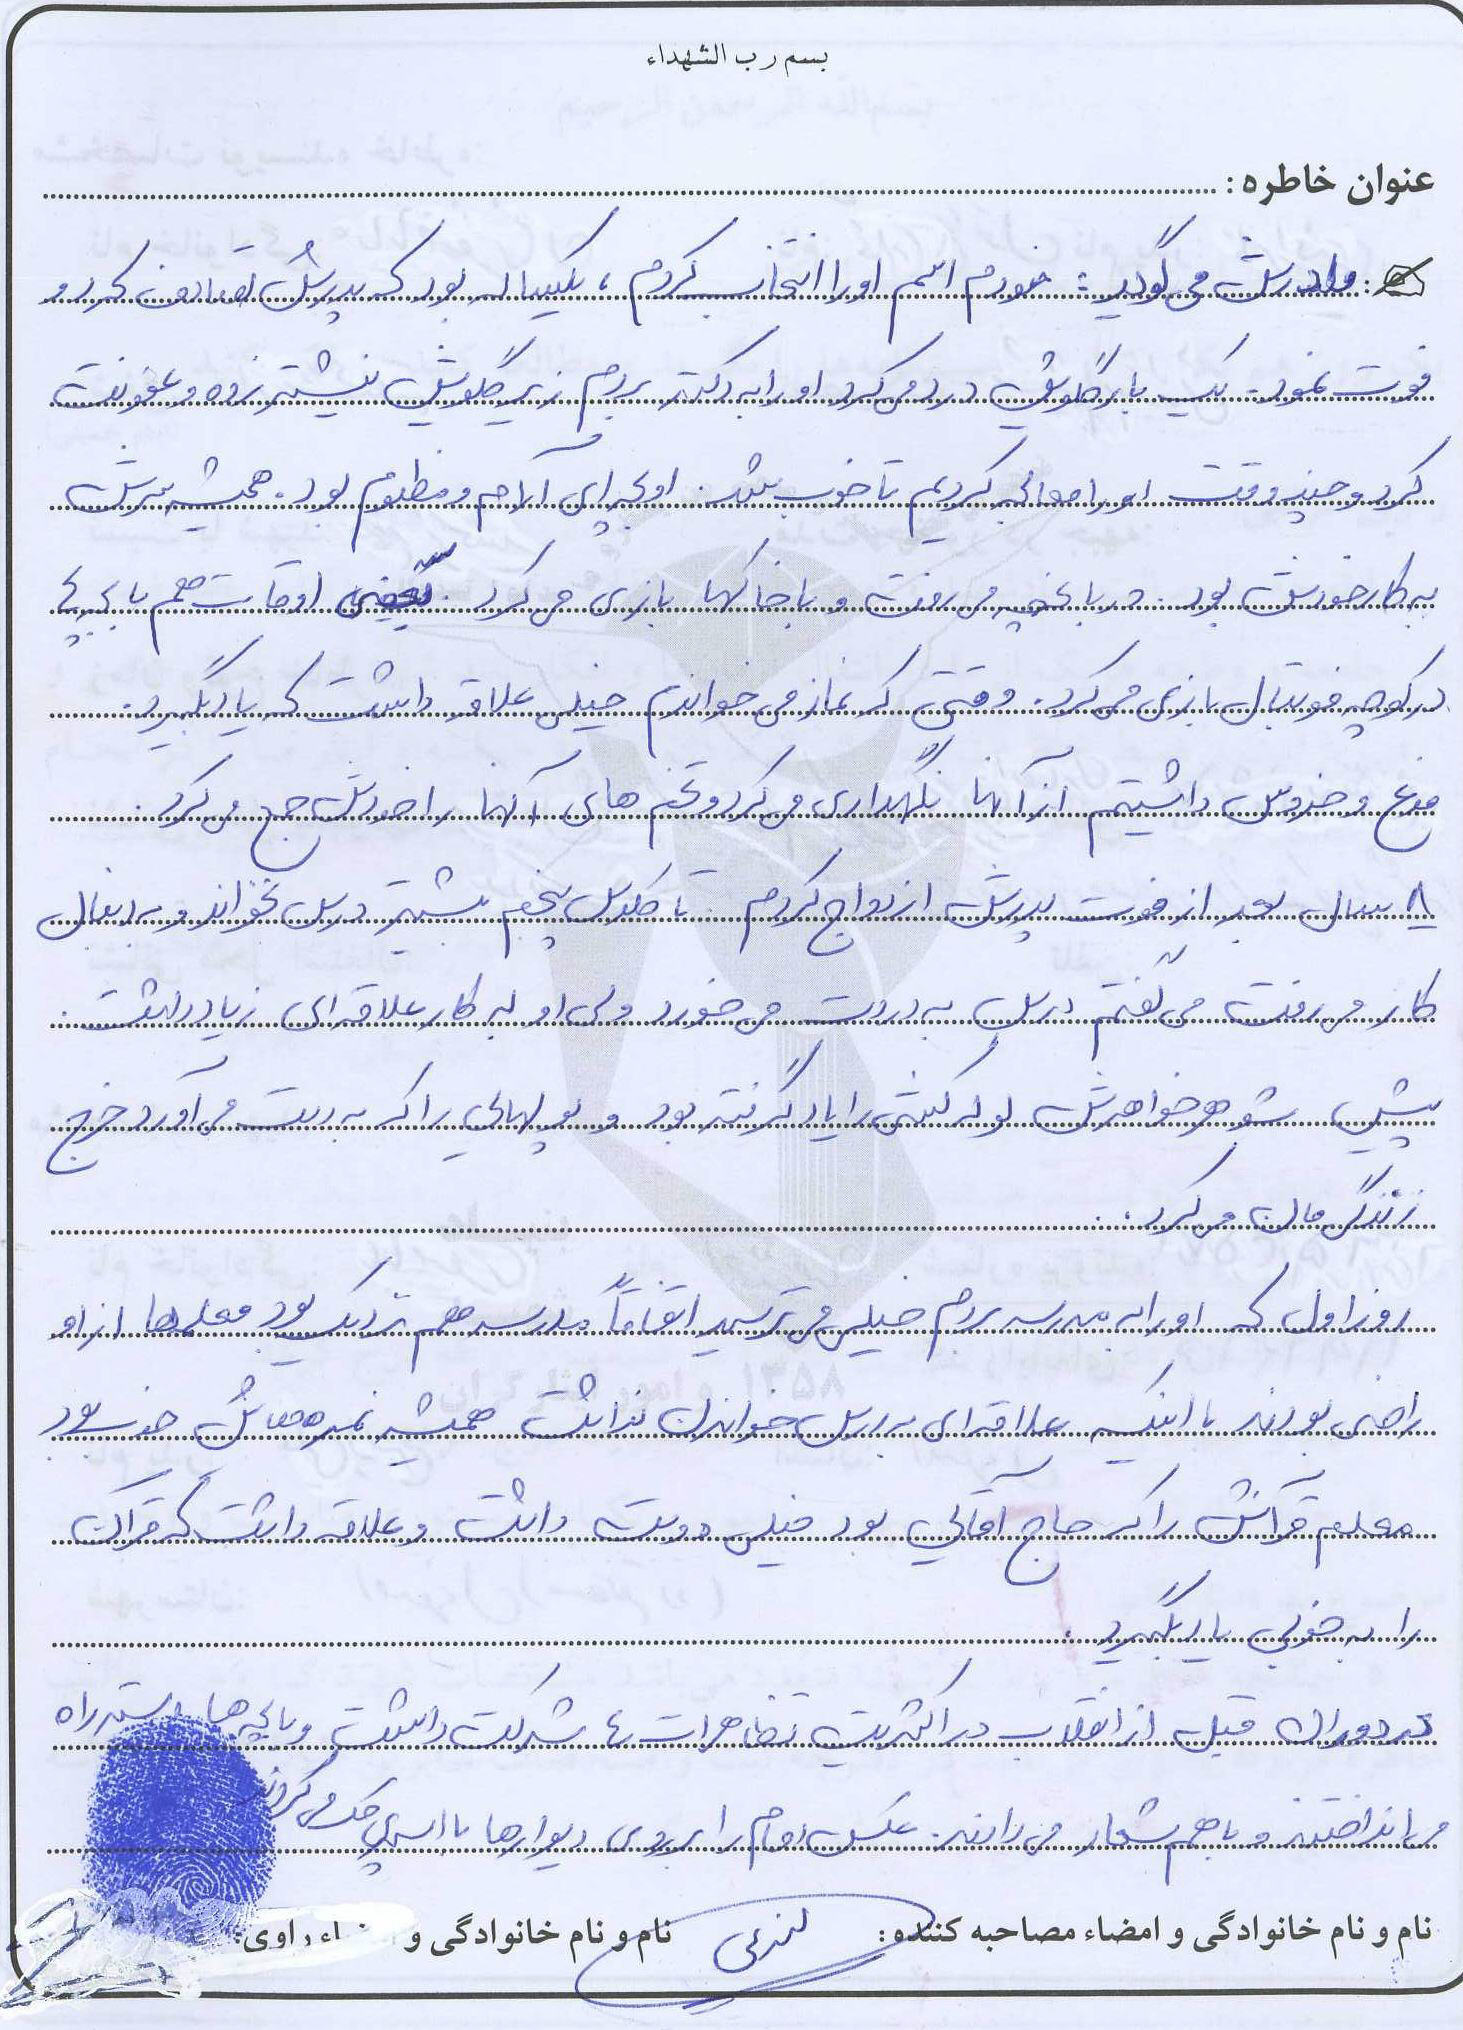 بسم رب الشهداء
عنوان خاطره :
مادرش می گوید : خودم اسم او را انتخاب کردم ، یکساله بود که پدرش تصادف کرد و
فوت نمود. یک بار گلویش درد می کرد او را به دکتر بردم زیر گلویش نیشتر زده و عفونت
کرد و چند وقت او را معالجه کردیم تا خوب شد. او بچه ای آرام و مظلوم بود. همیشه سرش
به کار خودش بود. در باغچه می رفت و با خاکها بازی می کرد. بعضی اوقات هم با بچه های
در کوچه فوتبال بازی می کرد. وقتی که نماز می خواندم خیلی علاقه داشت که یاد بگیرد.
مرغ و خروس داشتیم از آنها نگهداری می کرد و تخم های آنها را خودش جمع می کرد.
۸ سال بعد از فوت پدرش ازدواج کردم. تا کلاس پنجم بیشتر درس نخواند و به دنبال
کار می رفت می گفتم درس به دردت می خورد ولی او به کار علاقه ای زیاد داشت.
پیش شوهر خواهرش لوله کشی را یاد گرفته بود و پولهایی را که به دست می آورد خرج
زندگی مان می کرد.
روز اول که او را به مدرسه بردم خیلی می ترسید اتفاقاً مدرسه هم نزدیک بود معلمها از او
راضی بودند با اینکه علاقه ای به درس خواندن نداشت همیشه نمره هایش خوب بود
معلم قرآنش را که حاج آقائی بود خیلی دوست داشت و علاقه داشت که قرآن
را به خوبی یاد بگیرد.
در دوران قبل از انقلاب در اکثریت تظاهرات ها شرکت داشت و با بچه ها دسته راه
می انداختند و با هم شعار می دادند. عکس امام را بر روی دیوارها با اسپری حک می کردند
نام و نام خانوادگی و امضاء مصاحبه کننده: نام و نام خانوادگی و امضاء راوی: